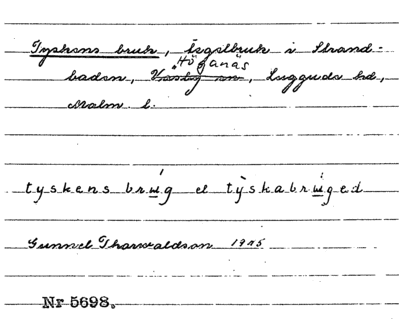 Tyskens bruk, tegelbruk i Strand-
Höganäs
baden, Väsby sn, Luggude hd,
Malm. l.
tyskens brɯ́g el tỳskabrɯ́ged
Gunnel Thorvaldson 1945
Nr 5698.